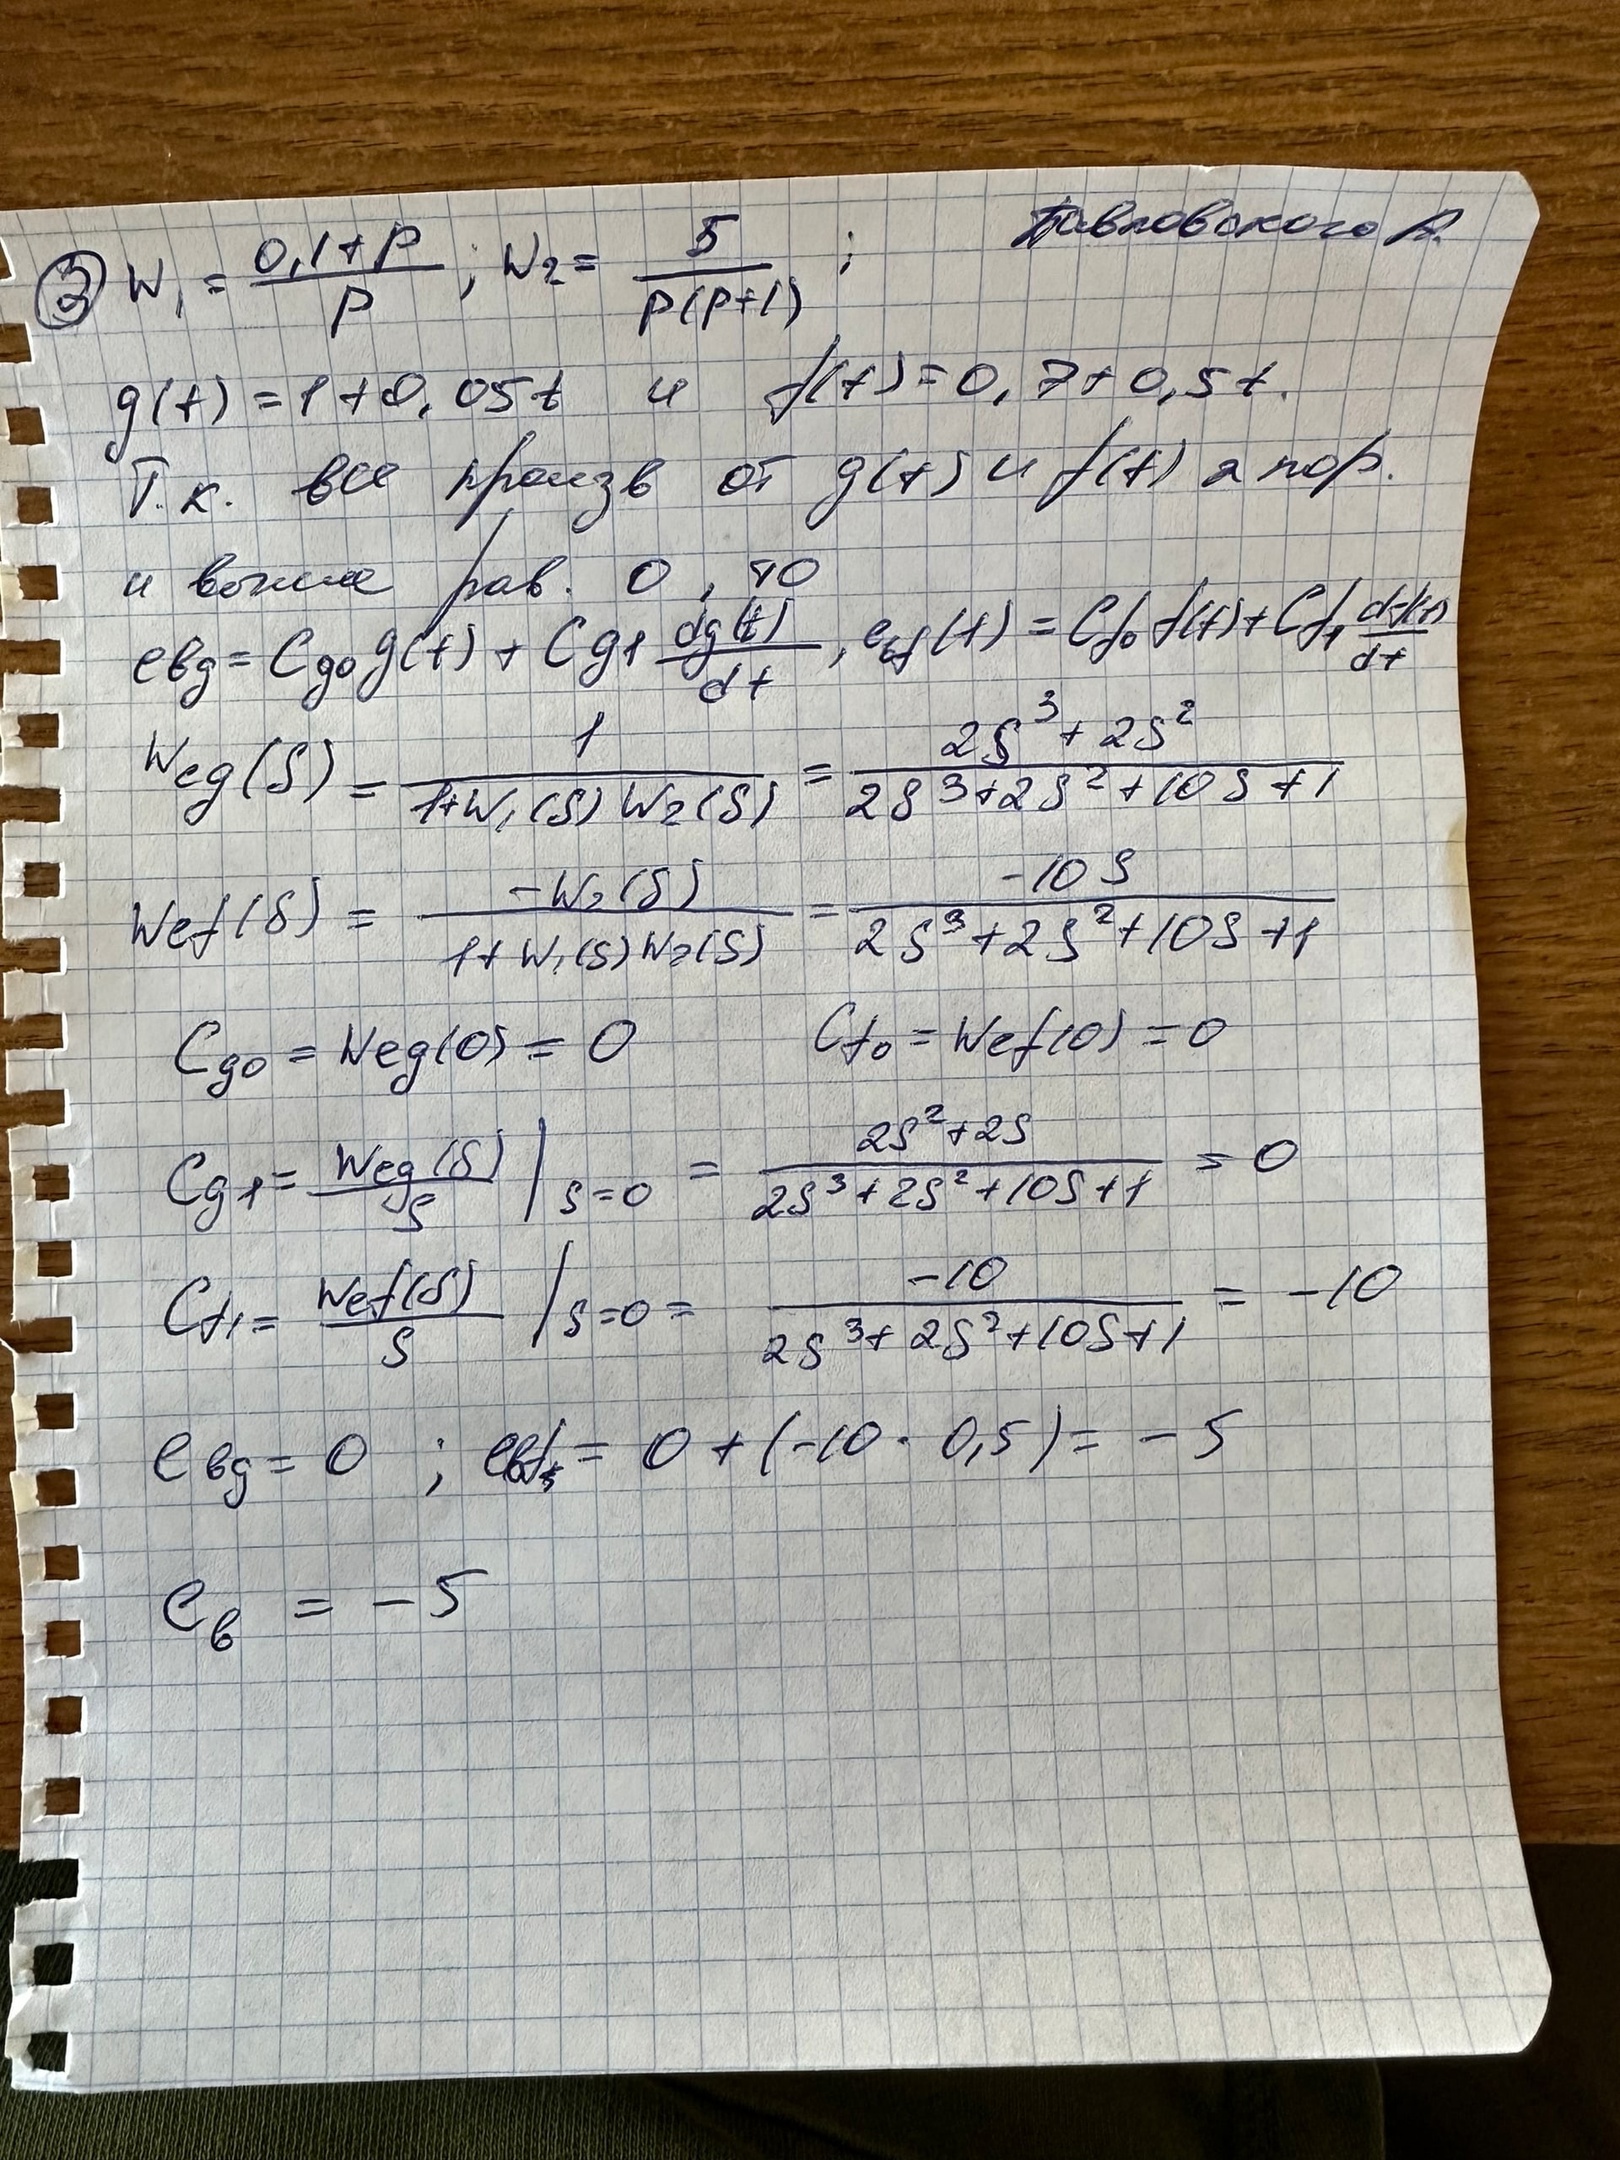 Павловского А.
③ W₁ = (0,1+p)/p ; W₂ = 5/(p(p+1)) ;
g(t) = 1+0,05t и f(t) = 0,7+0,5t.
Т.к. все произв от g(t) и f(t) 2 пор.
и выше рав. 0, то
eвg = Cg0 g(t) + Cg1 dg(t)/dt , eвf(t) = Cf0 f(t) + Cf1 df(t)/dt
Weg(S) = 1/(1+W₁(S) W₂(S)) = (2S³+2S²)/(2S³+2S²+10S+1)
Wef(S) = -W₂(S)/(1+W₁(S)W₂(S)) = -10S/(2S³+2S²+10S+1)
Cg0 = Weg(0) = 0 Cf0 = Wef(0) = 0
Cg1 = Weg(S)/S |S=0 = (2S²+2S)/(2S³+2S²+10S+1) = 0
Cf1 = Wef(S)/S |S=0 = -10/(2S³+2S²+10S+1) = -10
eвg = 0 ; eвf = 0 + (-10 · 0,5) = -5
eв = -5